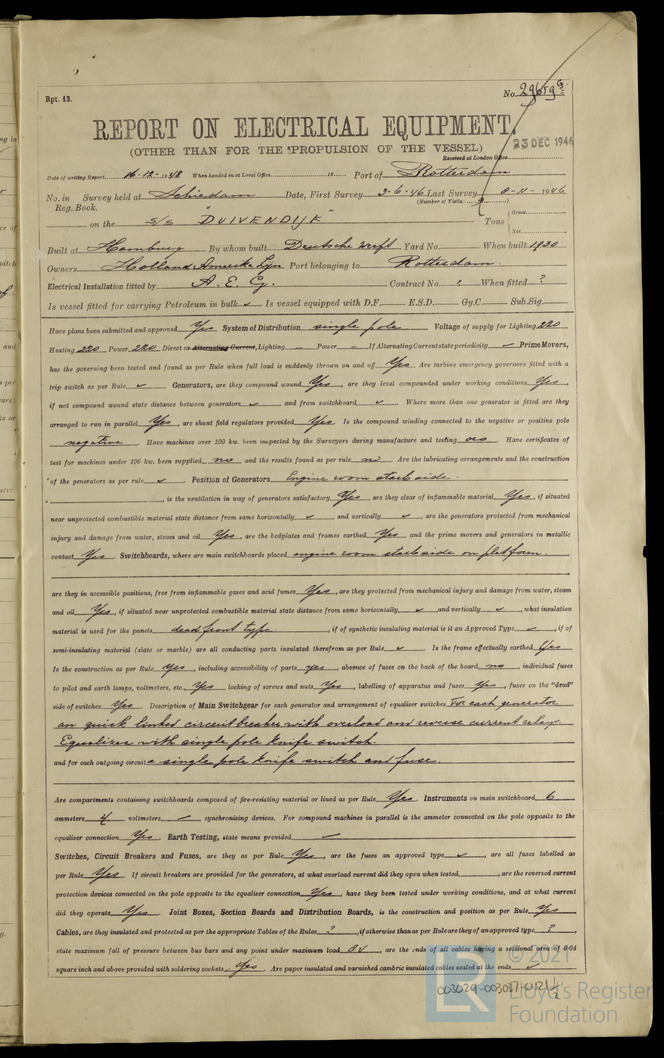 Rpt. 13.
No. 29659 G.
REPORT ON ELECTRICAL EQUIPMENT.
(OTHER THAN FOR THE PROPULSION OF THE VESSEL)
23 DEC 1946
Received at London Office
Date of writing Report 16-12-1948 When handed in at Local Office 19 Port of Rotterdam
No. in Survey held at Schiedam Date, First Survey 3-6-46 Last Survey 8-11-1946
Reg. Book. (Number of Visits )
on the s/s "DUIVENDIJK" Tons Gross Net
Built at Hamburg By whom built Deutsche Werft Yard No. When built 1930
Owners Holland Amerika Lijn Port belonging to Rotterdam.
Electrical Installation fitted by A. E. G. Contract No. ? When fitted ?
Is vessel fitted for carrying Petroleum in bulk ✓ Is vessel equipped with D.F. E.S.D. Gy.C. Sub.Sig.
Have plans been submitted and approved Yes System of Distribution single pole Voltage of supply for Lighting 220
Heating 220 Power 220 Direct or Alternating Current, Lighting Power If Alternating Current state periodicity ✓ Prime Movers,
has the governing been tested and found as per Rule when full load is suddenly thrown on and off Yes Are turbine emergency governors fitted with a
trip switch as per Rule ✓ Generators, are they compound wound Yes, are they level compounded under working conditions Yes,
if not compound wound state distance between generators ✓ and from switchboard ✓ Where more than one generator is fitted are they
arranged to run in parallel Yes, are shunt field regulators provided Yes Is the compound winding connected to the negative or positive pole
negative Have machines over 100 kw. been inspected by the Surveyors during manufacture and testing Have certificates of
test for machines under 100 kw. been supplied no and the results found as per rule no Are the lubricating arrangements and the construction
of the generators as per rule ✓ Position of Generators Engine room starb side.
is the ventilation in way of generators satisfactory Yes are they clear of inflammable material Yes, if situated
near unprotected combustible material state distance from same horizontally ✓ and vertically ✓, are the generators protected from mechanical
injury and damage from water, steam and oil Yes, are the bedplates and frames earthed Yes and the prime movers and generators in metallic
contact Yes Switchboards, where are main switchboards placed engine room starb side on platform.
are they in accessible positions, free from inflammable gases and acid fumes Yes, are they protected from mechanical injury and damage from water, steam
and oil Yes, if situated near unprotected combustible material state distance from same horizontally ✓ and vertically ✓, what insulation
material is used for the panels dead front type, if of synthetic insulating material is it an Approved Type ✓, if of
semi-insulating material (slate or marble) are all conducting parts insulated therefrom as per Rule ✓ Is the frame effectually earthed Yes
Is the construction as per Rule Yes, including accessibility of parts yes, absence of fuses on the back of the board no, individual fuses
to pilot and earth lamps, voltmeters, etc., Yes locking of screws and nuts Yes, labelling of apparatus and fuses Yes, fuses on the "dead"
side of switches Yes Description of Main Switchgear for each generator and arrangement of equaliser switches For each generator
an quick linked circuit breaker with overload and reverse current relay
Equalizer with single pole knife switch.
and for each outgoing circuit a single pole knife switch and fuse.
Are compartments containing switchboards composed of fire-resisting material or lined as per Rule Yes Instruments on main switchboard 6
ammeters 4 voltmeters ✓ synchronising devices. For compound machines in parallel is the ammeter connected on the pole opposite to the
equaliser connection Yes Earth Testing, state means provided ✓
Switches, Circuit Breakers and Fuses, are they as per Rule Yes, are the fuses an approved type ✓, are all fuses labelled as
per Rule Yes If circuit breakers are provided for the generators, at what overload current did they open when tested , are the reversed current
protection devices connected on the pole opposite to the equaliser connection Yes, have they been tested under working conditions, and at what current
did they operate Yes Joint Boxes, Section Boards and Distribution Boards, is the construction and position as per Rule Yes
Cables, are they insulated and protected as per the appropriate Tables of the Rules ?, if otherwise than as per Rule are they of an approved type ?,
state maximum fall of pressure between bus bars and any point under maximum load , are the ends of all cables having a sectional area of 0·04
square inch and above provided with soldering sockets Yes Are paper insulated and varnished cambric insulated cables sealed at the ends ✓
003029-003037-0121 1/2
© 2021
Lloyd's Register
Foundation
LR